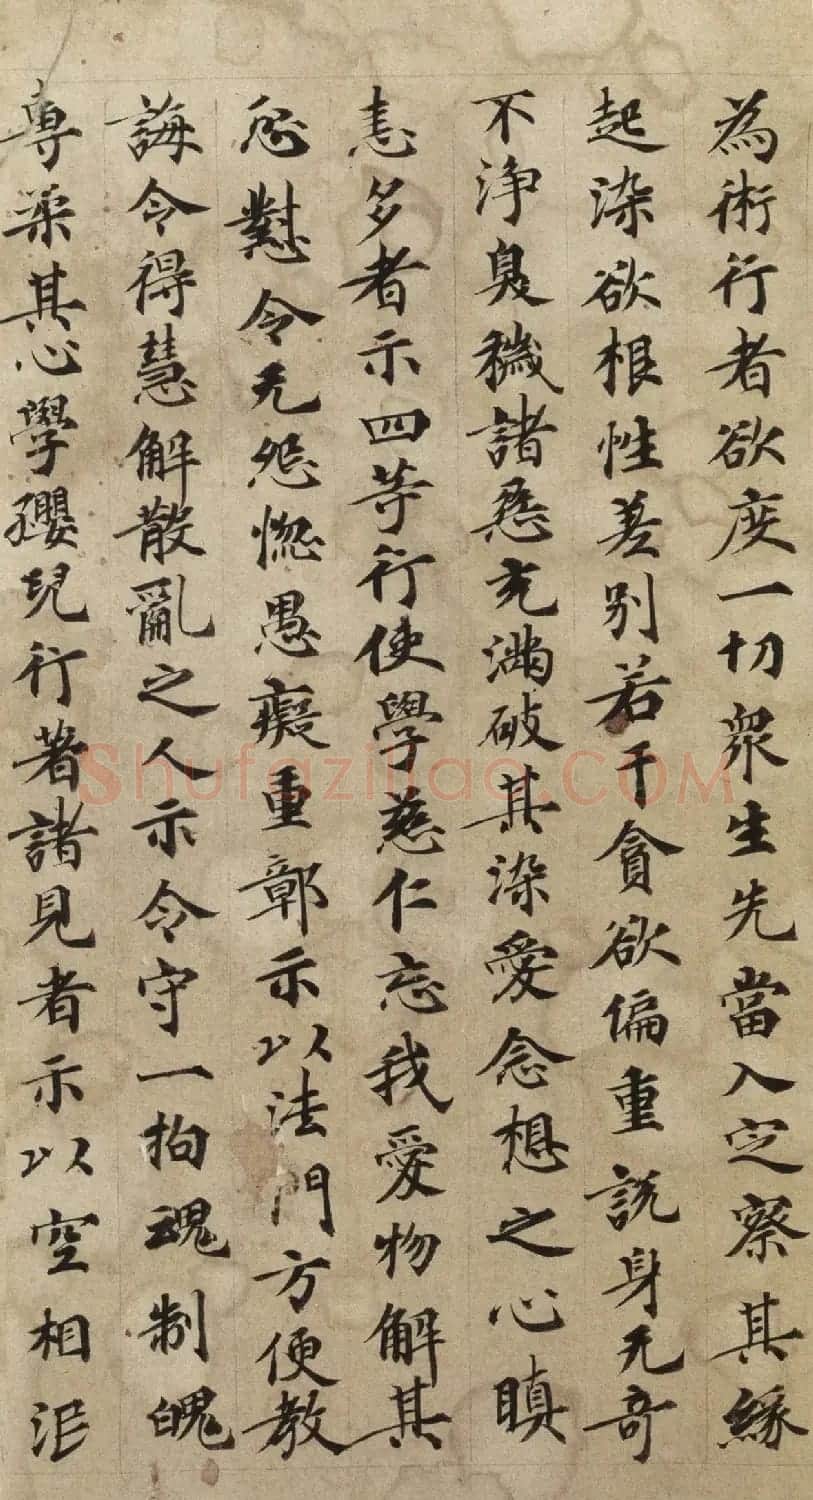 為術行者欲度一切眾生先當入定察其緣
起染欲根性差別若干貪欲偏重說身无奇
不淨臭穢諸惡充滿破其染愛念想之心瞋
恚多者示四等行使學慈仁忘我愛物解其
忿懟令无怨惚愚癡重鄣示以法門方便教
誨令得慧解散亂之人示令守一拘魂制魄
專柔其心學孾兒行著諸見者示以空相泯
Shufaziliao.COM